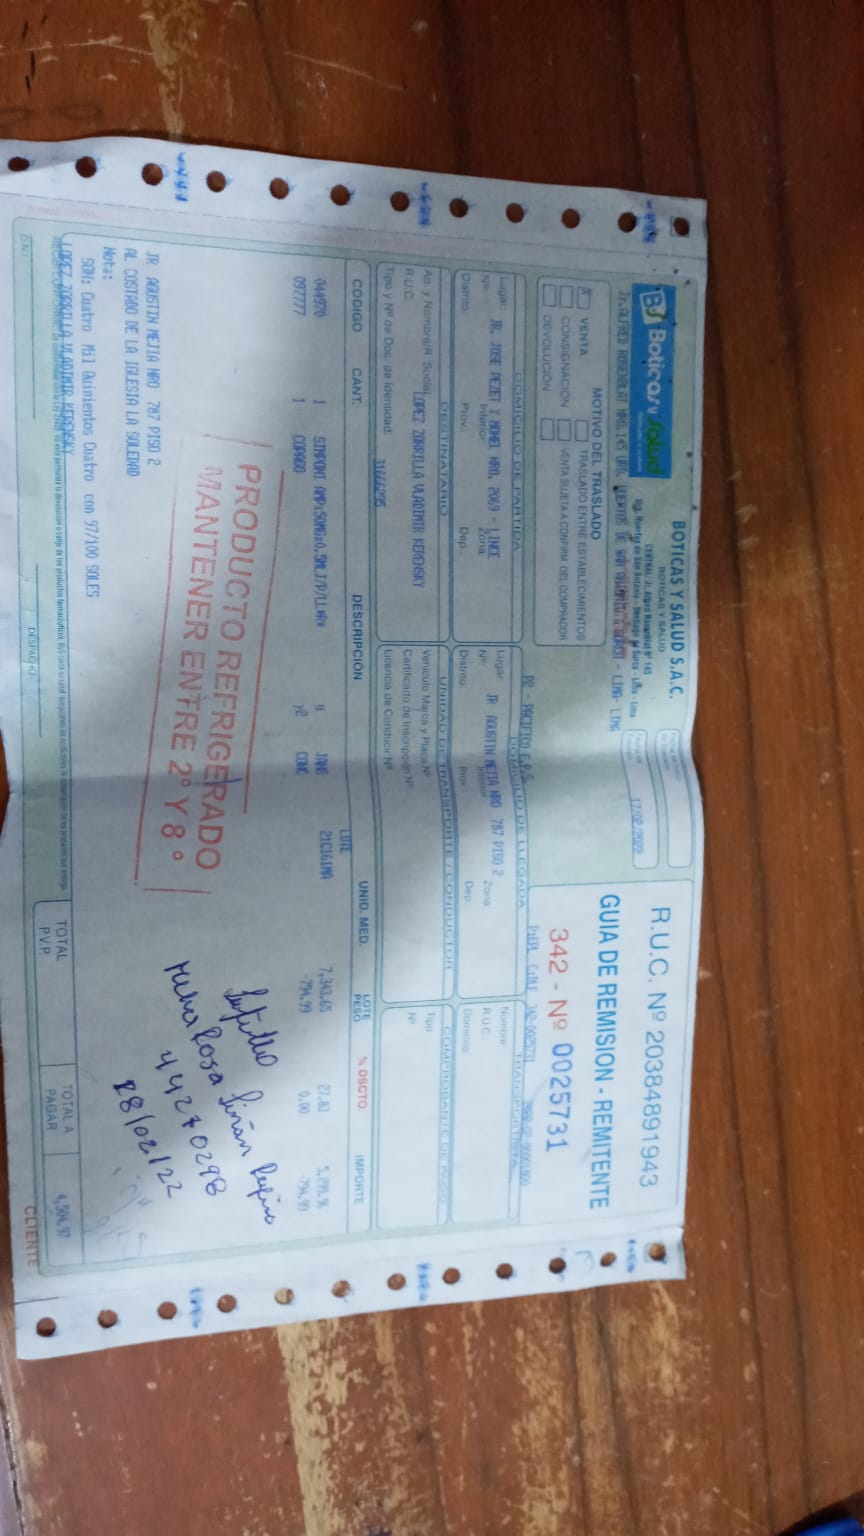 BS Boticas y Salud
BOTICAS Y SALUD S.A.C.
BOTICAS Y SALUD
CENTRAL: Jr. Alfred Rosenblat N° 145
Urb. Huertos de San Antonio - Santiago de Surco - Lima - Lima
Jr. ALFRED ROSENBLAT NRO.145 URB. HUERTOS DE SAN - LIMA- LIMA
17/02/2022
R.U.C. Nº 20384891943
GUIA DE REMISION - REMITENTE
342 - Nº 0025731
MOTIVO DEL TRASLADO
X VENTA
TRASLADO ENTRE ESTABLECIMIENTOS
CONSIGNACIÓN
VENTA SUJETA A CONFIRM. DEL COMPRADOR
DEVOLUCIÓN
PACIFICO E.P.S.
342-0025731
DOMICILIO DE PARTIDA
Lugar:
Nº: JR. JOSE PEZET Y MONEL NRO. 2069 - LINCE
Interior: Zona:
Distrito: Prov.: Dep.:
DOMICILIO DE LLEGADA
Lugar:
Nº: JR AGUSTIN MEJIA NRO 787 PISO 2
Interior Zona
Distrito: Prov.: Dep.
TRANSPORTISTA
Nombre:
R.U.C.:
Domicilio:
DESTINATARIO
Ap. y Nombre/R. Social: LOPEZ ZORRILLA VLADIMIR KERENSKY
R.U.C.
Tipo y Nº de Doc. de Identidad: 31666295
UNIDAD DE TRANSPORTE / CONDUCTOR
Vehículo Marca y Placa Nº
Certificado de Inscripción Nº:
Licencia de Conducir Nº
COMPROBANTE DE PAGO
Tipo
Nº
CODIGO CANT. DESCRIPCIÓN UNID. MED. LOTE PESO % DSCTO. IMPORTE
LOTE
044970 1 SIMPONI AMPx50MGx0.5ML J/P/LL*R* U JANS 21C161MA 7,343.65 27.83 5,299.96
092777 1 COPAGO y2 CONC -794.99 0.00 -794.99
PRODUCTO REFRIGERADO
MANTENER ENTRE 2º Y 8º
Rosa
44270298
28/02/22
JR AGUSTIN MEJIA NRO 787 PISO 2
AL COSTADO DE LA IGLESIA LA SOLEDAD
Nota:
SON: Cuatro Mil Quinientos Cuatro con 97/100 SOLES
LOPEZ ZORRILLA VLADIMIR KERENSKY
TOTAL P.V.P.
TOTAL A PAGAR
4,504.97
D.N.I.
DESPACHO
CLIENTE